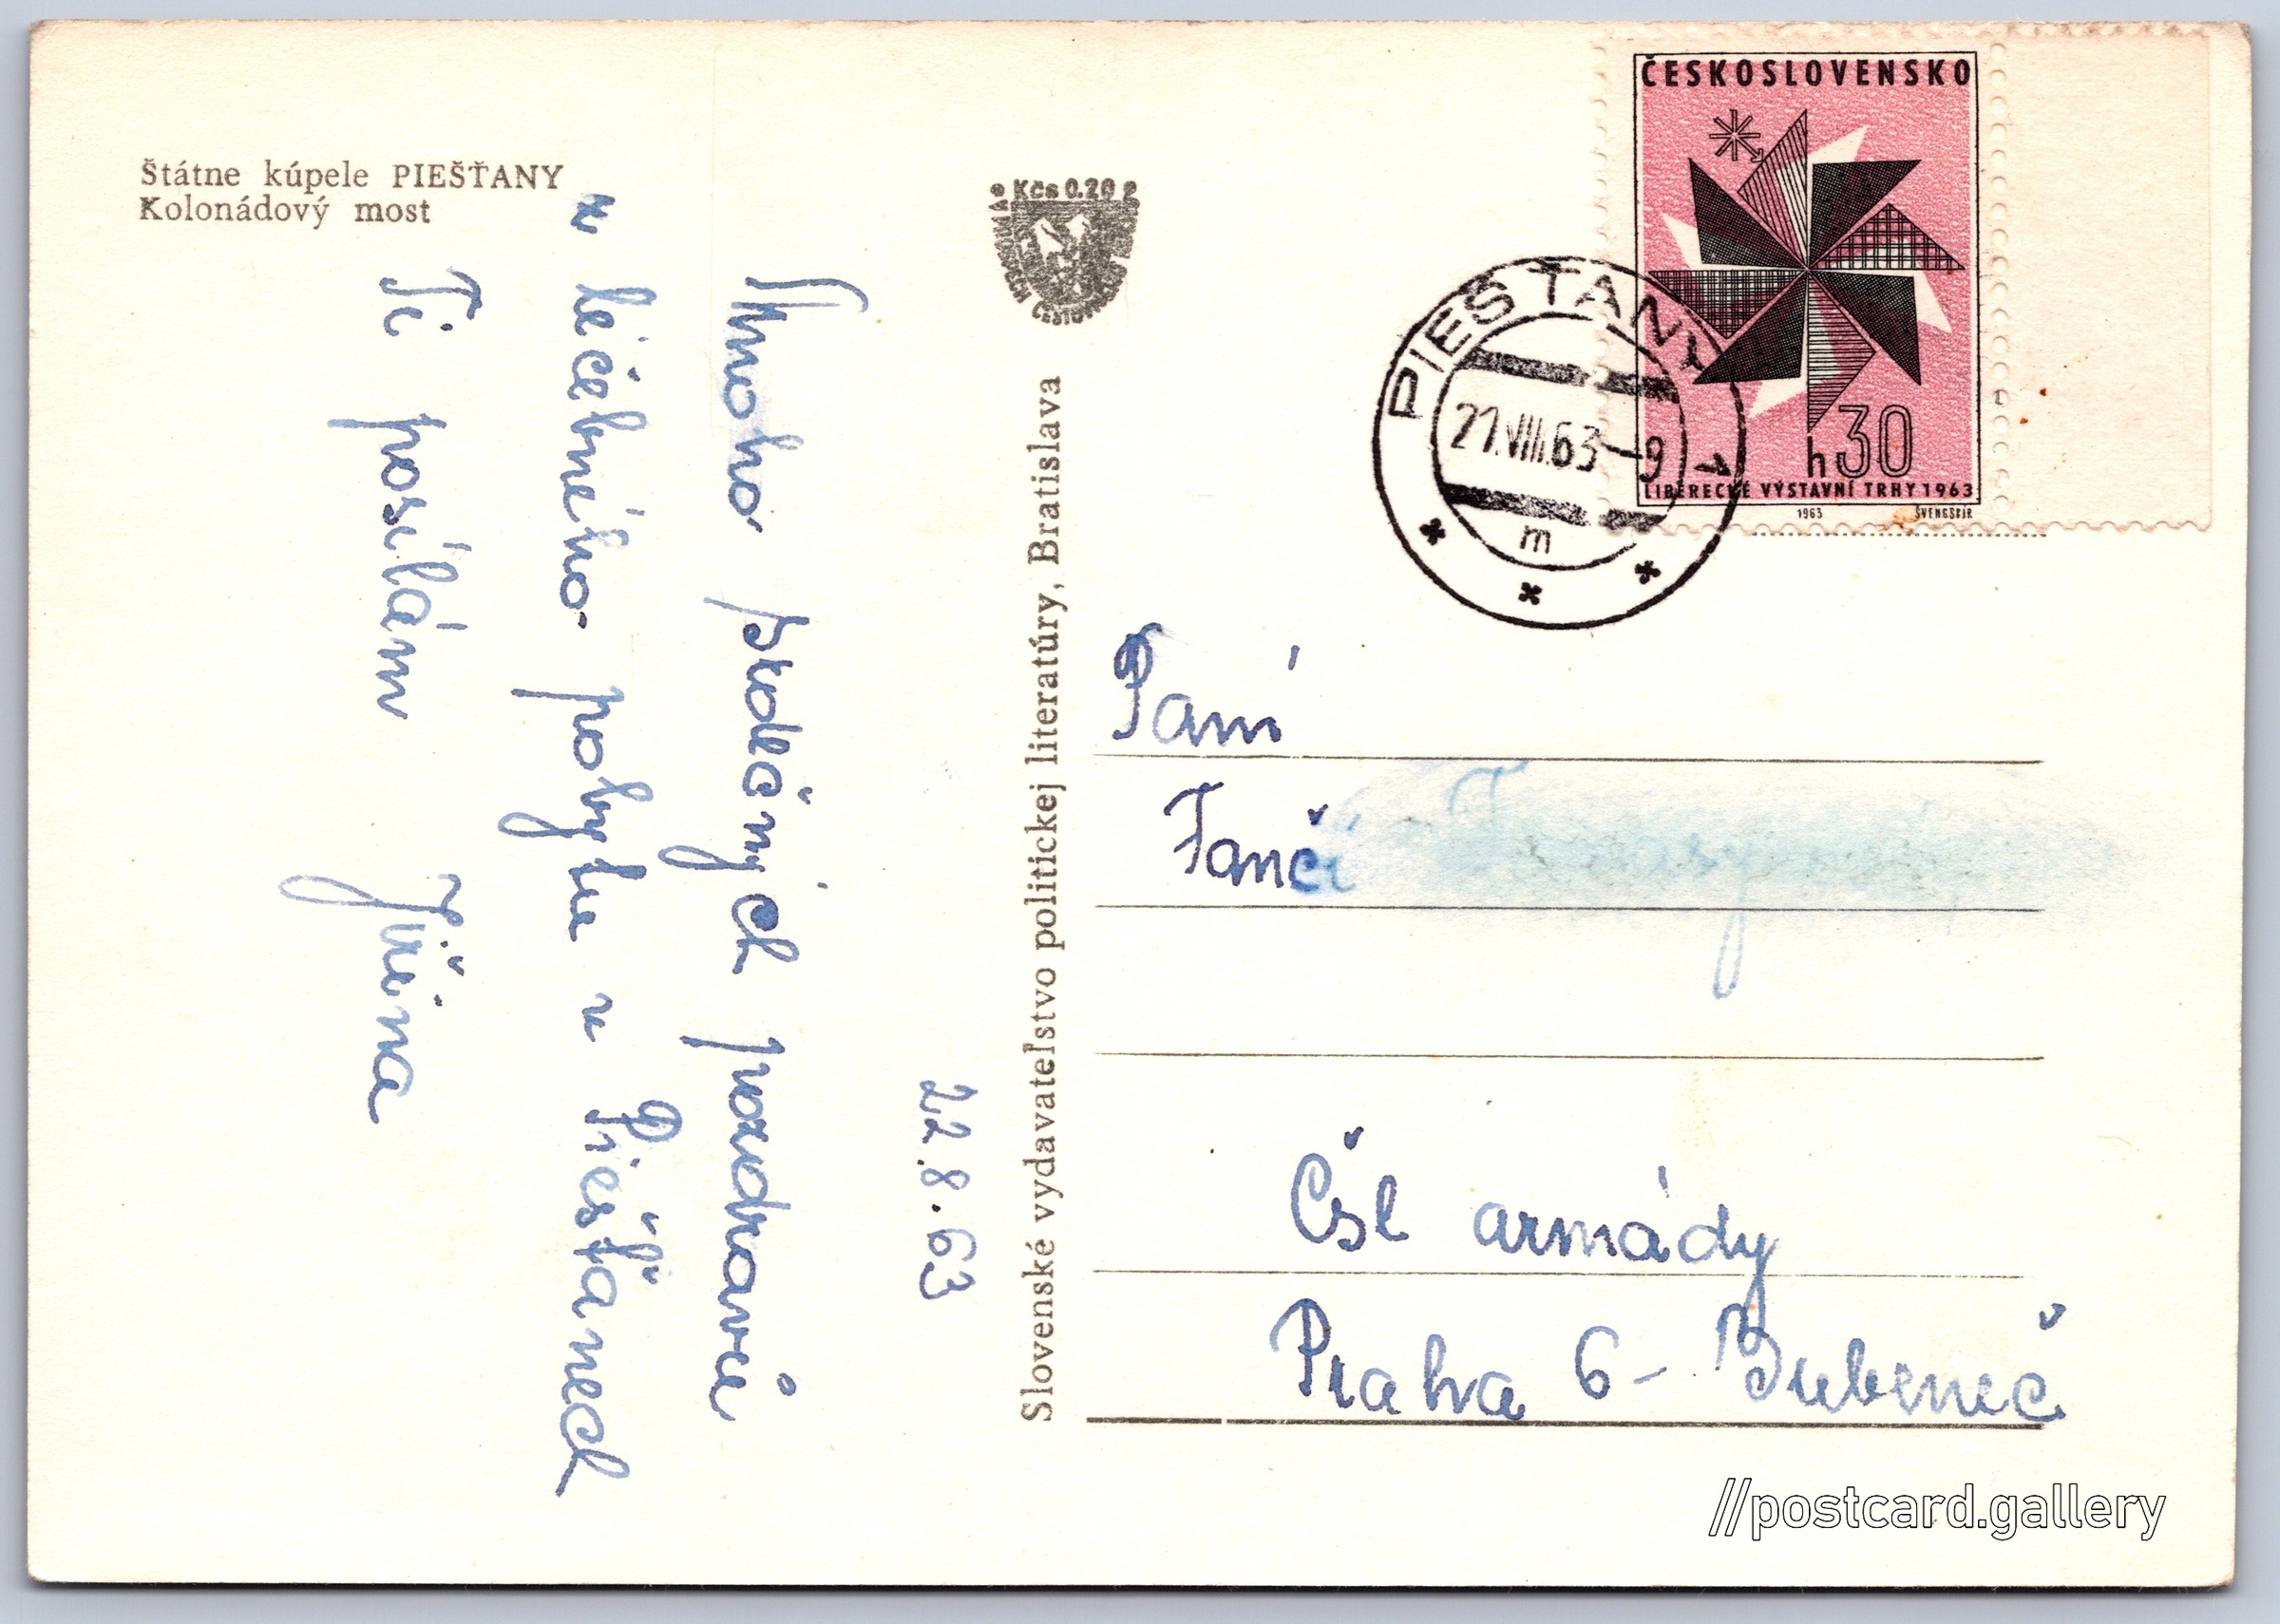 Štátne kúpele PIEŠŤANY
Kolonádový most
Kčs 0.20
Slovenské vydavateľstvo politickej literatúry, Bratislava
22.8.63
Mnoho srdečných pozdravů
z léčebného pobytu v Piešťanech
Ti posílám Jiřina
ČESKOSLOVENSKO
h 30
LIBERECKÉ VÝSTAVNÍ TRHY 1963
1963 ŠVENGSBÍR
PIEŠŤANY 1
21.VIII.63-9
m
Paní
Fanči
Čsl armády
Praha 6 - Bubeneč
//postcard.gallery